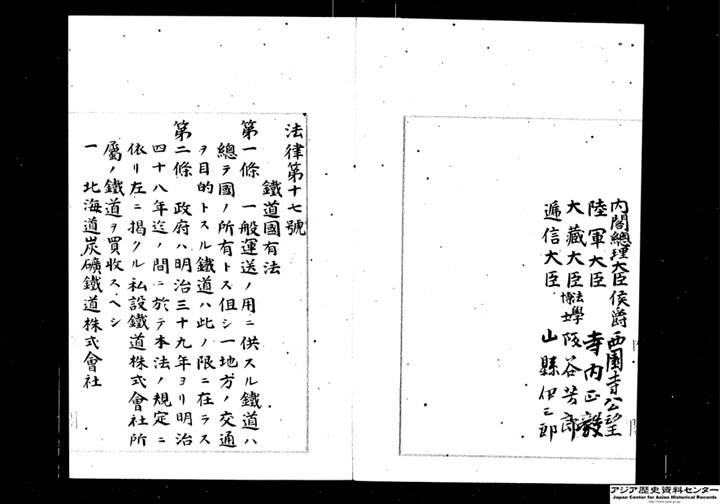 内閣總理大臣侯爵西園寺公望
陸軍大臣 寺内正毅
大藏大臣法學博士阪谷芳郎
遞信大臣 山縣伊三郎
法律第十七號
鐵道國有法
第一條 一般運送ノ用ニ供スル鐵道ハ
總テ國ノ所有トス但シ一地方ノ交通
ヲ目的トスル鐵道ハ此ノ限ニ在ラス
第二條 政府ハ明治三十九年ヨリ明治
四十八年迄ノ間ニ於テ本法ノ規定ニ
依リ左ニ揭クル私設鐵道株式會社所
屬ノ鐵道ヲ買收スヘシ
一 北海道炭礦鐵道株式會社
アジア歴史資料センター
Japan Center for Asian Historical Records
http://www.jacar.go.jp/